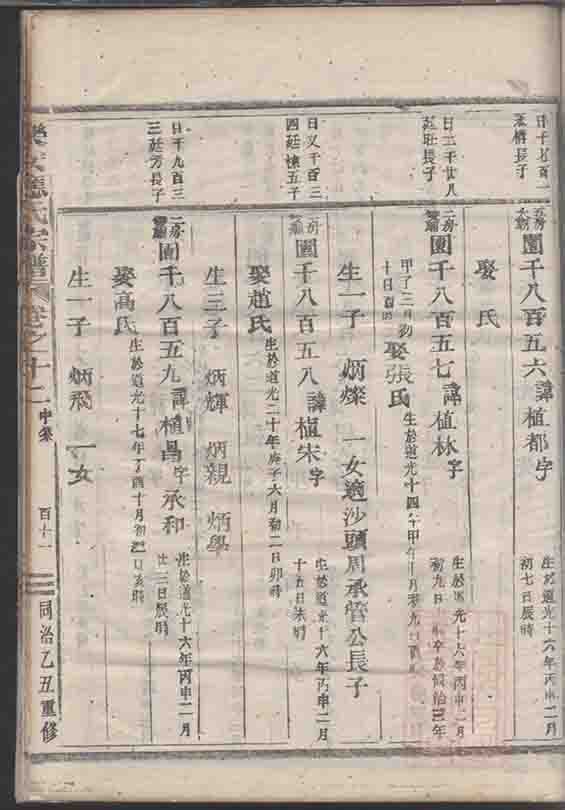 日千七百一
長子
五房
圍千八百五六 諱植都字
生於道光十六年丙申二月
初七日辰時
娶 氏
日二千廿八
廷旺長子
二房
圍千八百五七 諱植林字
生於道光十六年丙申二月
初九日 卒於同治三年
甲子三月初
十日酉時
娶張氏
生於道光十四年甲午
生一子 炳燦 一女適沙頭周承管公長子
日又千百三
四廷懷五子
二房
圍千八百五八 諱植宋字
生於道光十六年丙申二月
十五日未時
娶趙氏
生於道光二十年庚子六月初二日卯時
生三子 炳輝 炳親 炳學
日千九百三
三廷芳長子
二房
圍千八百五九 諱植昌字承和
生於道光十六年丙申二月
廿三日辰時
娶高氏
生於道光十七年丁酉十月初 日亥時
生一子 炳飛 一女
氏宗譜 卷之十二 中集 百十一 同治乙丑重修